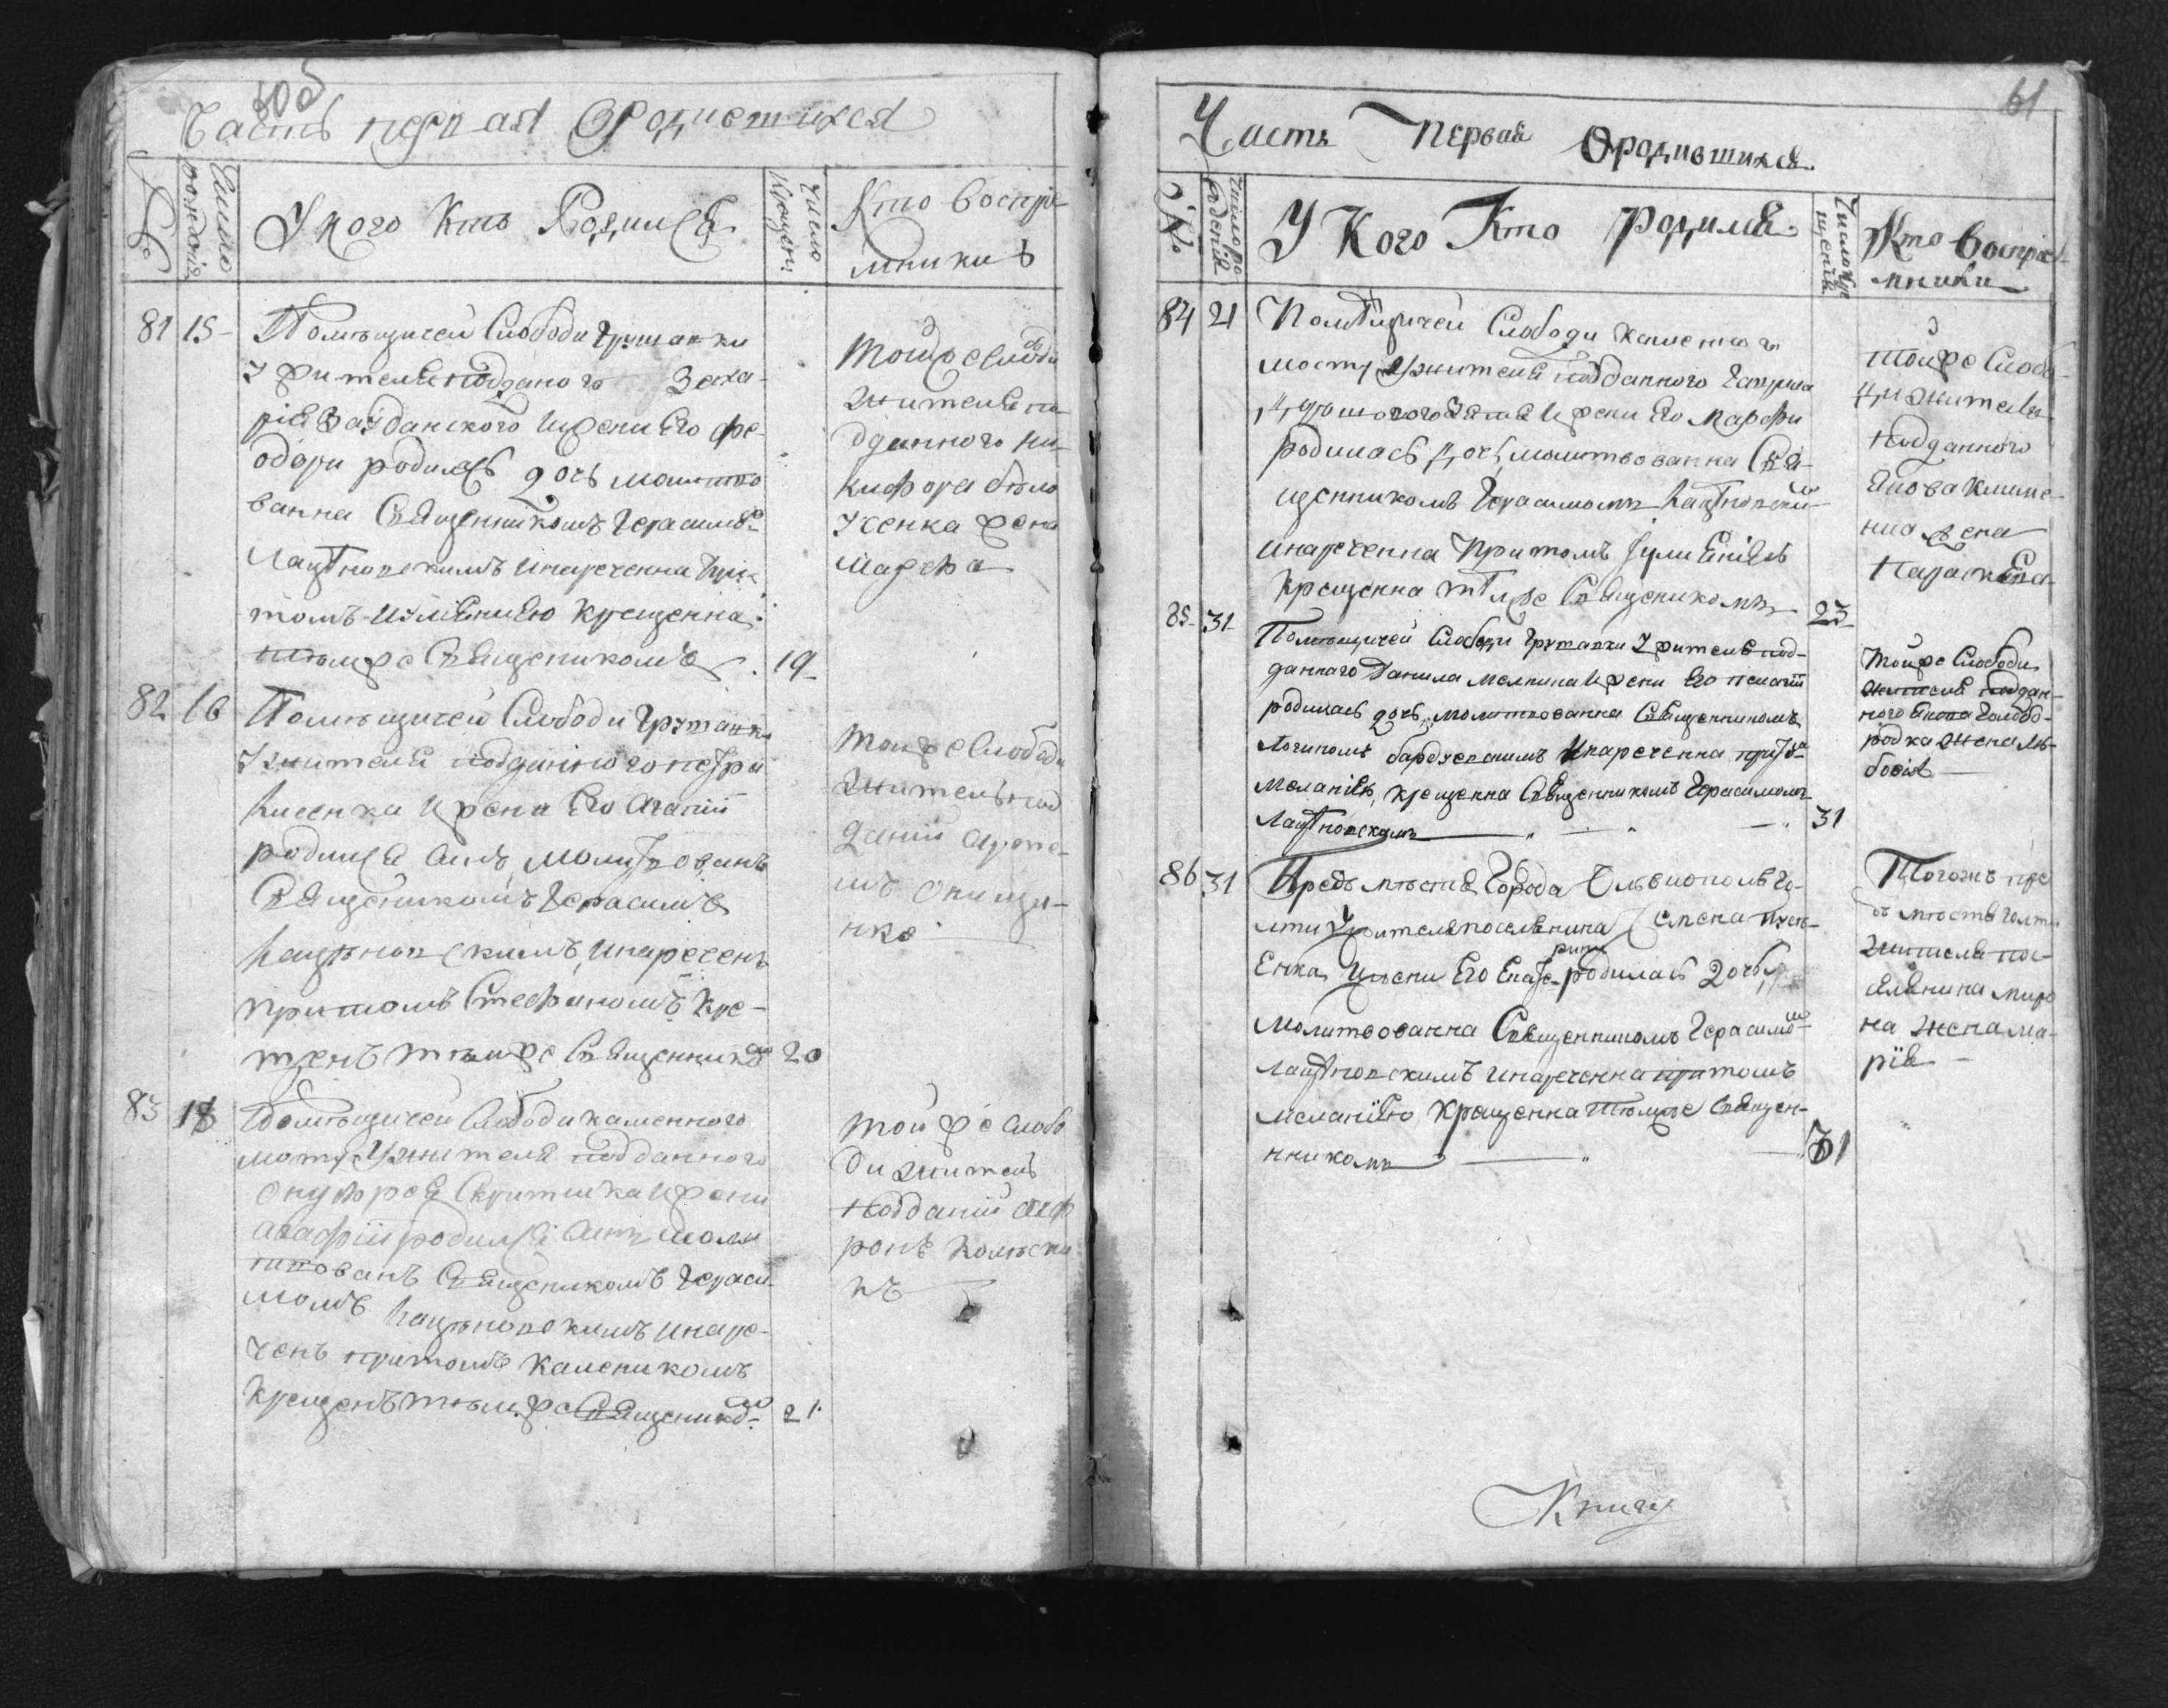 60об
Часть первая Ородившихся
№
Число рождения
У кого кто Родился
Число Крещен:
Кто воспрі-
мники
81 15 Помѣщичей Слободи Грушавки
У жителя подданого Заха-
рія Зайданского Ижени Его Фе-
одори родилась дочь молитво
ванна Священникомъ Герасимо-
Лацѣновскимъ Инаречена При
томъ Иулиениею Крещенна
тѣмже Священикомъ 19
Тойже слободи
Жителя по
дданного Ни-
кифора Бѣло
усенка жена
Марфа
82 16 Помѣщичей Слободи Грушавки
Ужителя подданного Петра
Кисенка Ижени Его Агапіи
родился Синъ, молитвованъ
Священикомъ Герасимо
Лацѣновскимъ, инареченъ
притомъ Стефаномъ Кре-
щенъ тѣмже Священнико 20
Тойже Слободи
Житель под
даній Арте-
мъ Онище-
нко
83 18 Помѣщичей Слободи каменного
мосту Ужителя подданного
Онуфрея Скритника Ижени
агафіи родился Синъ моли
твованъ Священикомъ Гераси-
момъ Лацѣновскимъ инаре-
ченъ притомъ Каленикомъ
Крещенъ тѣмже Священико- 21
Той же слобо
ди житель
подданій
ронъ
нъ
61
Часть Первая Ородившихся
№
Число рожденія
У Кого Кто родился
Число кре щенія
Кто воспріе-
мники
84 21 Помѣщичей Слободи каменного
мосту Ужителя подданного Гаврила
Ижени Его Марфи
родилась дочь, молитвованна Свя-
щенникомъ Герасимомъ Лацѣновски-
инареченна Притомъ Іулианіею
Крещенна тѣмже Священикомъ 23
тойже Слобо-
ди жителя
подданного
Якова Климе-
нка жена
Параскева
85 31 Помѣщичей Слободи Грушавки Ужителя под-
данного Данила Мелника Ижени Его Пелагіи
родилась дочь, молитвованна Священникомъ
Логиномъ Инареченна прито-
Меланіею, крещенна Священникомъ Герасимомъ
Лацѣновскимъ 31
Тойже Слободи
жителя поддан-
ного Якова Голобо-
родка жена Лю-
бовія
86 31 Предъ мѣстя Города Ольвиополя Го-
лти Ужителя поселянина Семена
Енка Ижени Его Екате- рини родилась дочь,
Молитвованна Священникомъ Герасимо-
Лацѣновскимъ инареченна притомъ
меланіею Крещенна тѣмже Священ-
никомъ 31
Тогожъ пре
дъ мѣстя Голти
Жителя по-
селянина миро
на жена ма-
рія
Книгу